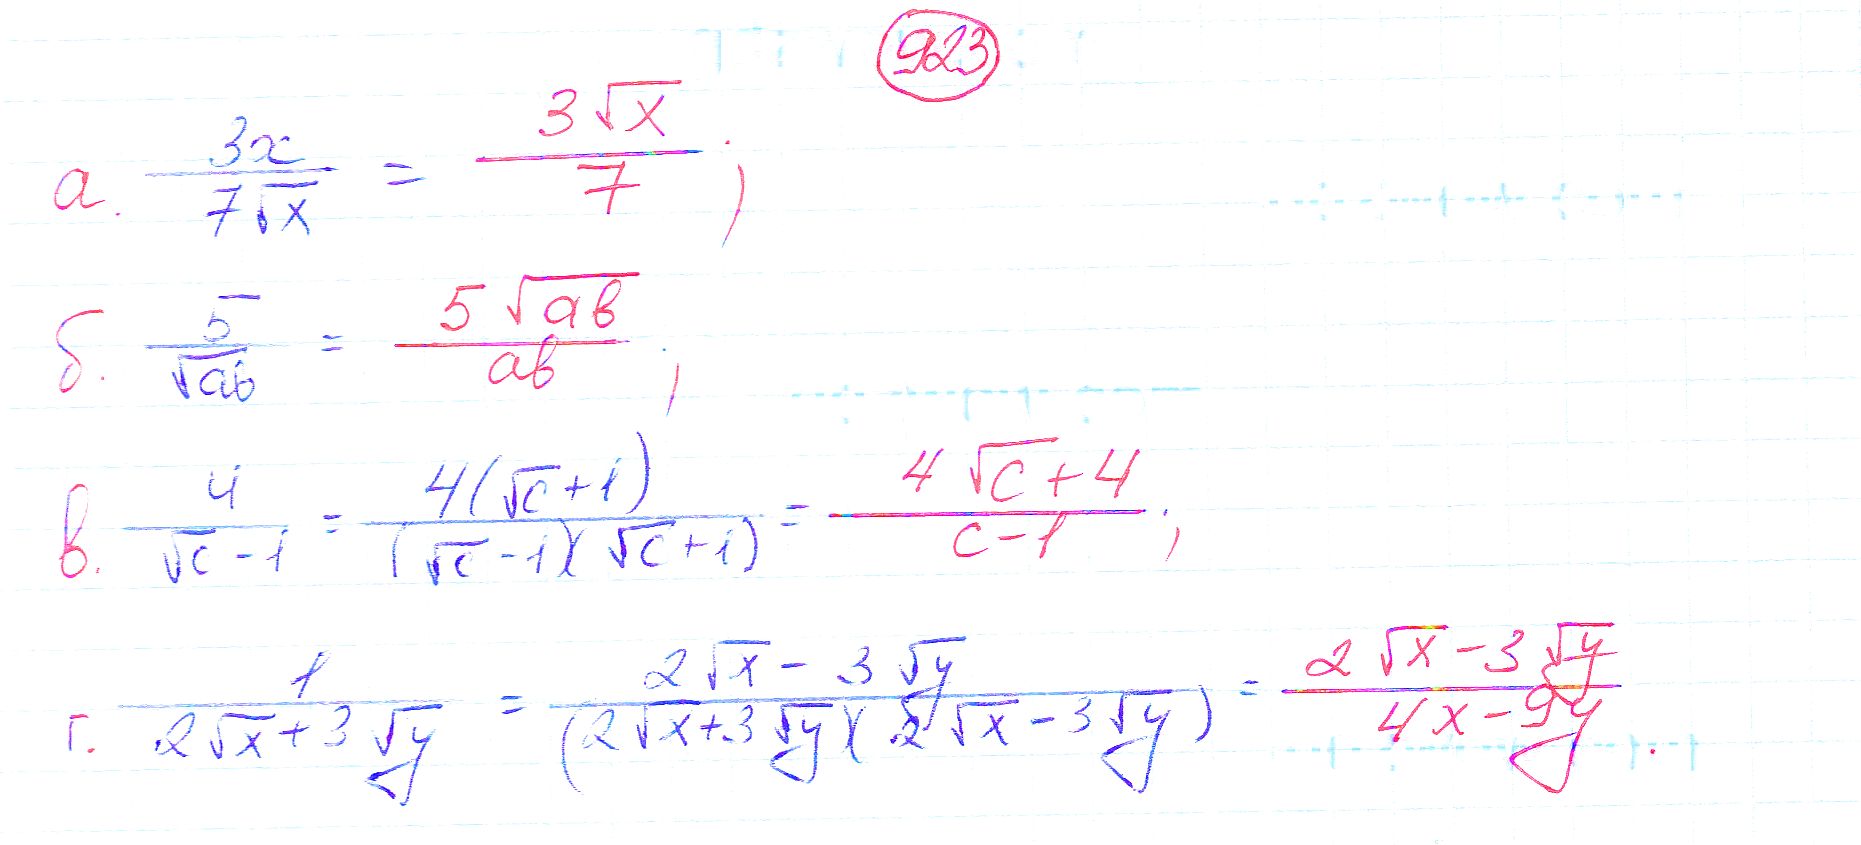 923
а. 3x / 7√x = 3√x / 7 ;
б. 5 / √ab = 5√ab / ab ;
в. 4 / √c - 1 = 4(√c + 1) / (√c - 1)(√c + 1) = 4√c + 4 / c - 1 ;
г. 1 / 2√x + 3√y = 2√x - 3√y / (2√x + 3√y)(2√x - 3√y) = 2√x - 3√y / 4x - 9y .